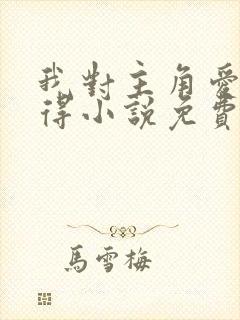 我對主角愛
得小說免費
馬雪梅